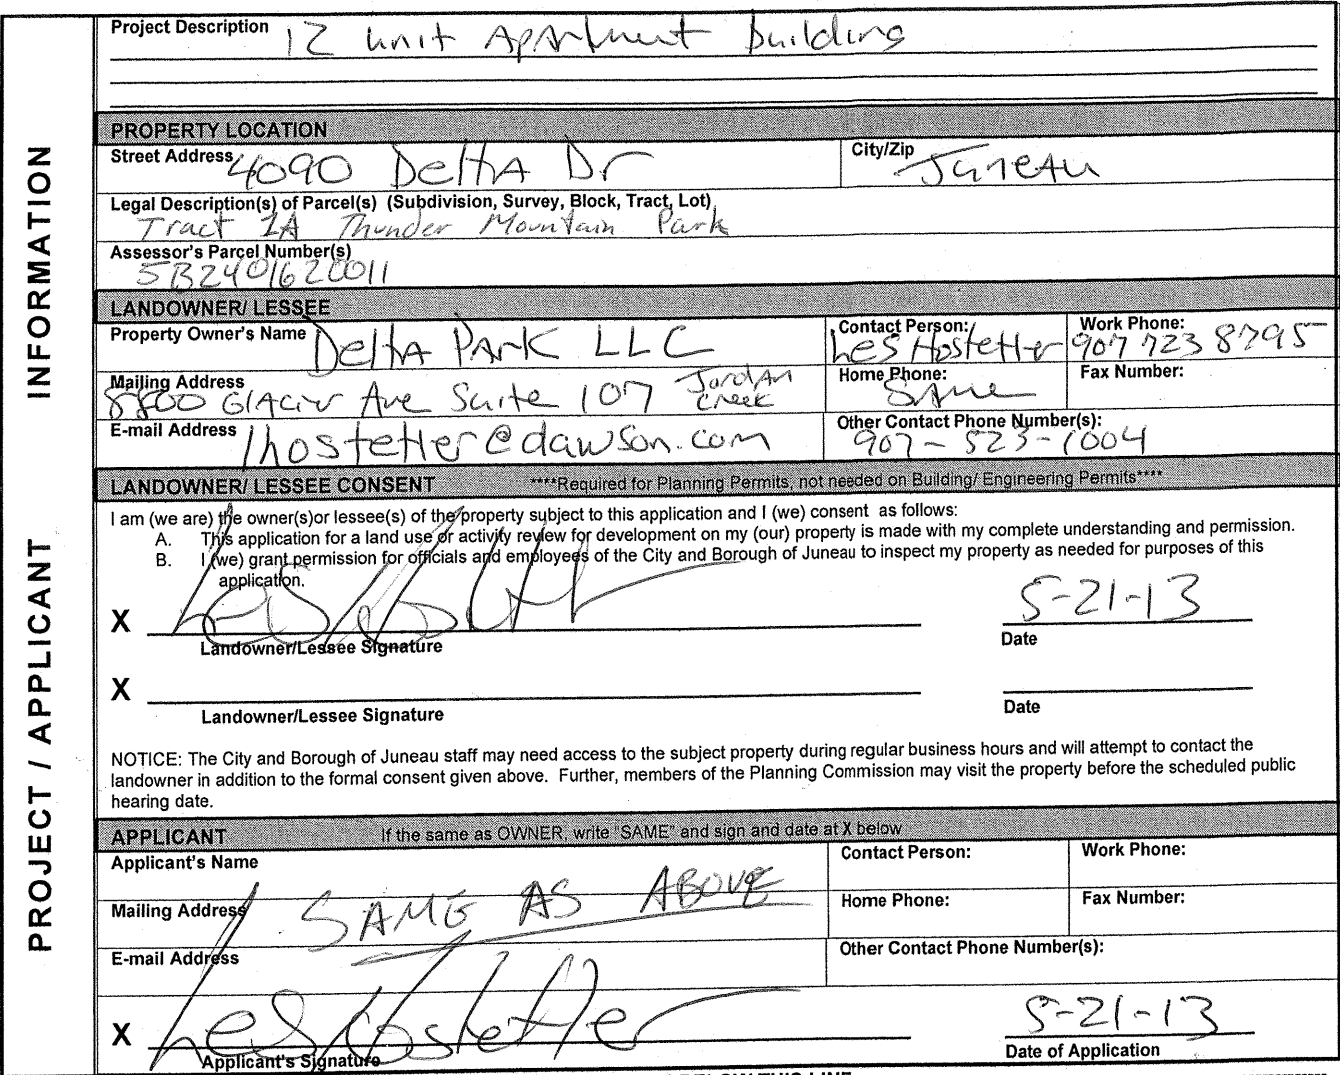 PROJECT / APPLICANT INFORMATION
Project Description 12 unit Apartment building
PROPERTY LOCATION
Street Address 4090 Delta Dr City/Zip Juneau
Legal Description(s) of Parcel(s) (Subdivision, Survey, Block, Tract, Lot)
Tract 1A Thunder Mountain Park
Assessor's Parcel Number(s)
5B2401620011
LANDOWNER/ LESSEE
Property Owner's Name Delta Park LLC Contact Person: Les Hostetter Work Phone: 907 723 8795
Mailing Address 8800 Glacier Ave Suite 107 Jordan Creek Home Phone: Same Fax Number:
E-mail Address lhostetler@dawson.com Other Contact Phone Number(s): 907-523-1004
LANDOWNER/ LESSEE CONSENT ****Required for Planning Permits, not needed on Building/ Engineering Permits****
I am (we are) the owner(s)or lessee(s) of the property subject to this application and I (we) consent as follows:
A. This application for a land use or activity review for development on my (our) property is made with my complete understanding and permission.
B. I (we) grant permission for officials and employees of the City and Borough of Juneau to inspect my property as needed for purposes of this
application.
X Les Hostetter 5-21-13
Landowner/Lessee Signature Date
X
Landowner/Lessee Signature Date
NOTICE: The City and Borough of Juneau staff may need access to the subject property during regular business hours and will attempt to contact the
landowner in addition to the formal consent given above. Further, members of the Planning Commission may visit the property before the scheduled public
hearing date.
APPLICANT If the same as OWNER, write "SAME" and sign and date at X below
Applicant's Name Contact Person: Work Phone:
Mailing Address SAME AS ABOVE Home Phone: Fax Number:
E-mail Address Other Contact Phone Number(s):
X Les Hostetter 5-21-13
Applicant's Signature Date of Application